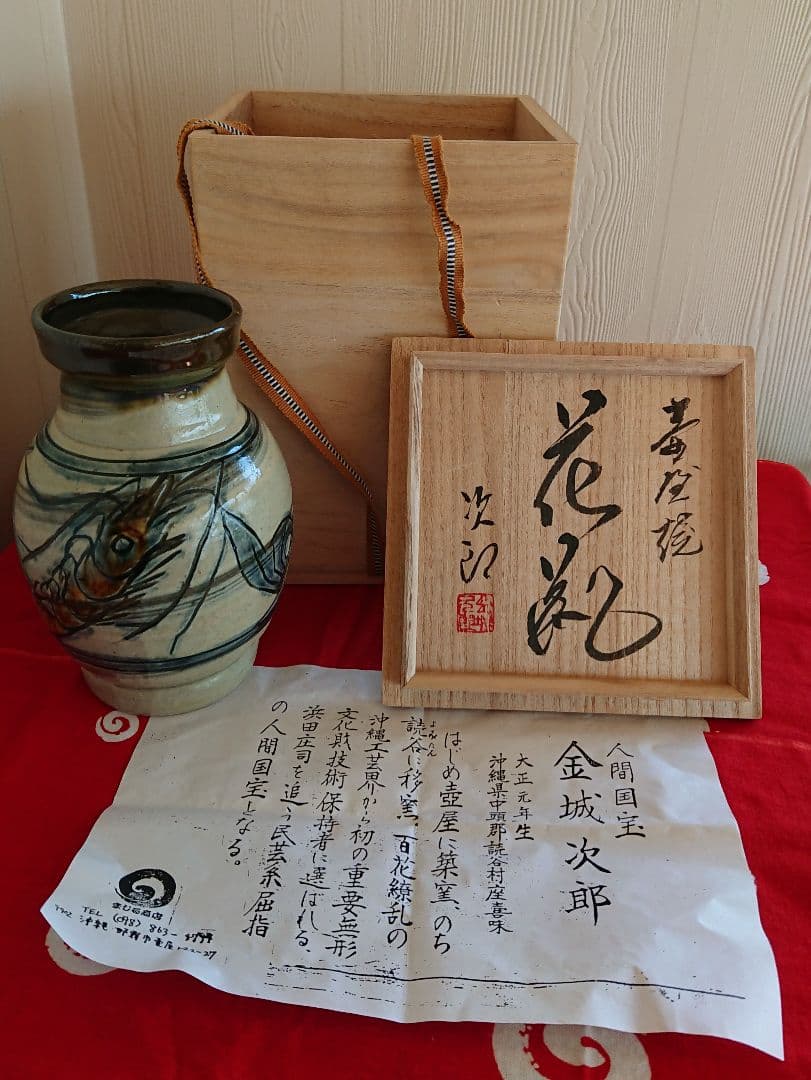 壺屋焼
花瓶
次郎
人間国宝
金城次郎
大正元年生
沖縄県中頭郡読谷村座喜味
はじめ壺屋に築窯、のち
読谷に移窯。百花繚乱の
よみたん
沖縄工芸界から初の重要無形
文化財技術保持者に選ばれる。
浜田庄司を追う民芸系屈指
の人間国宝となる。
TEL (098) 863-
沖縄 那覇市壷屋1-22-27